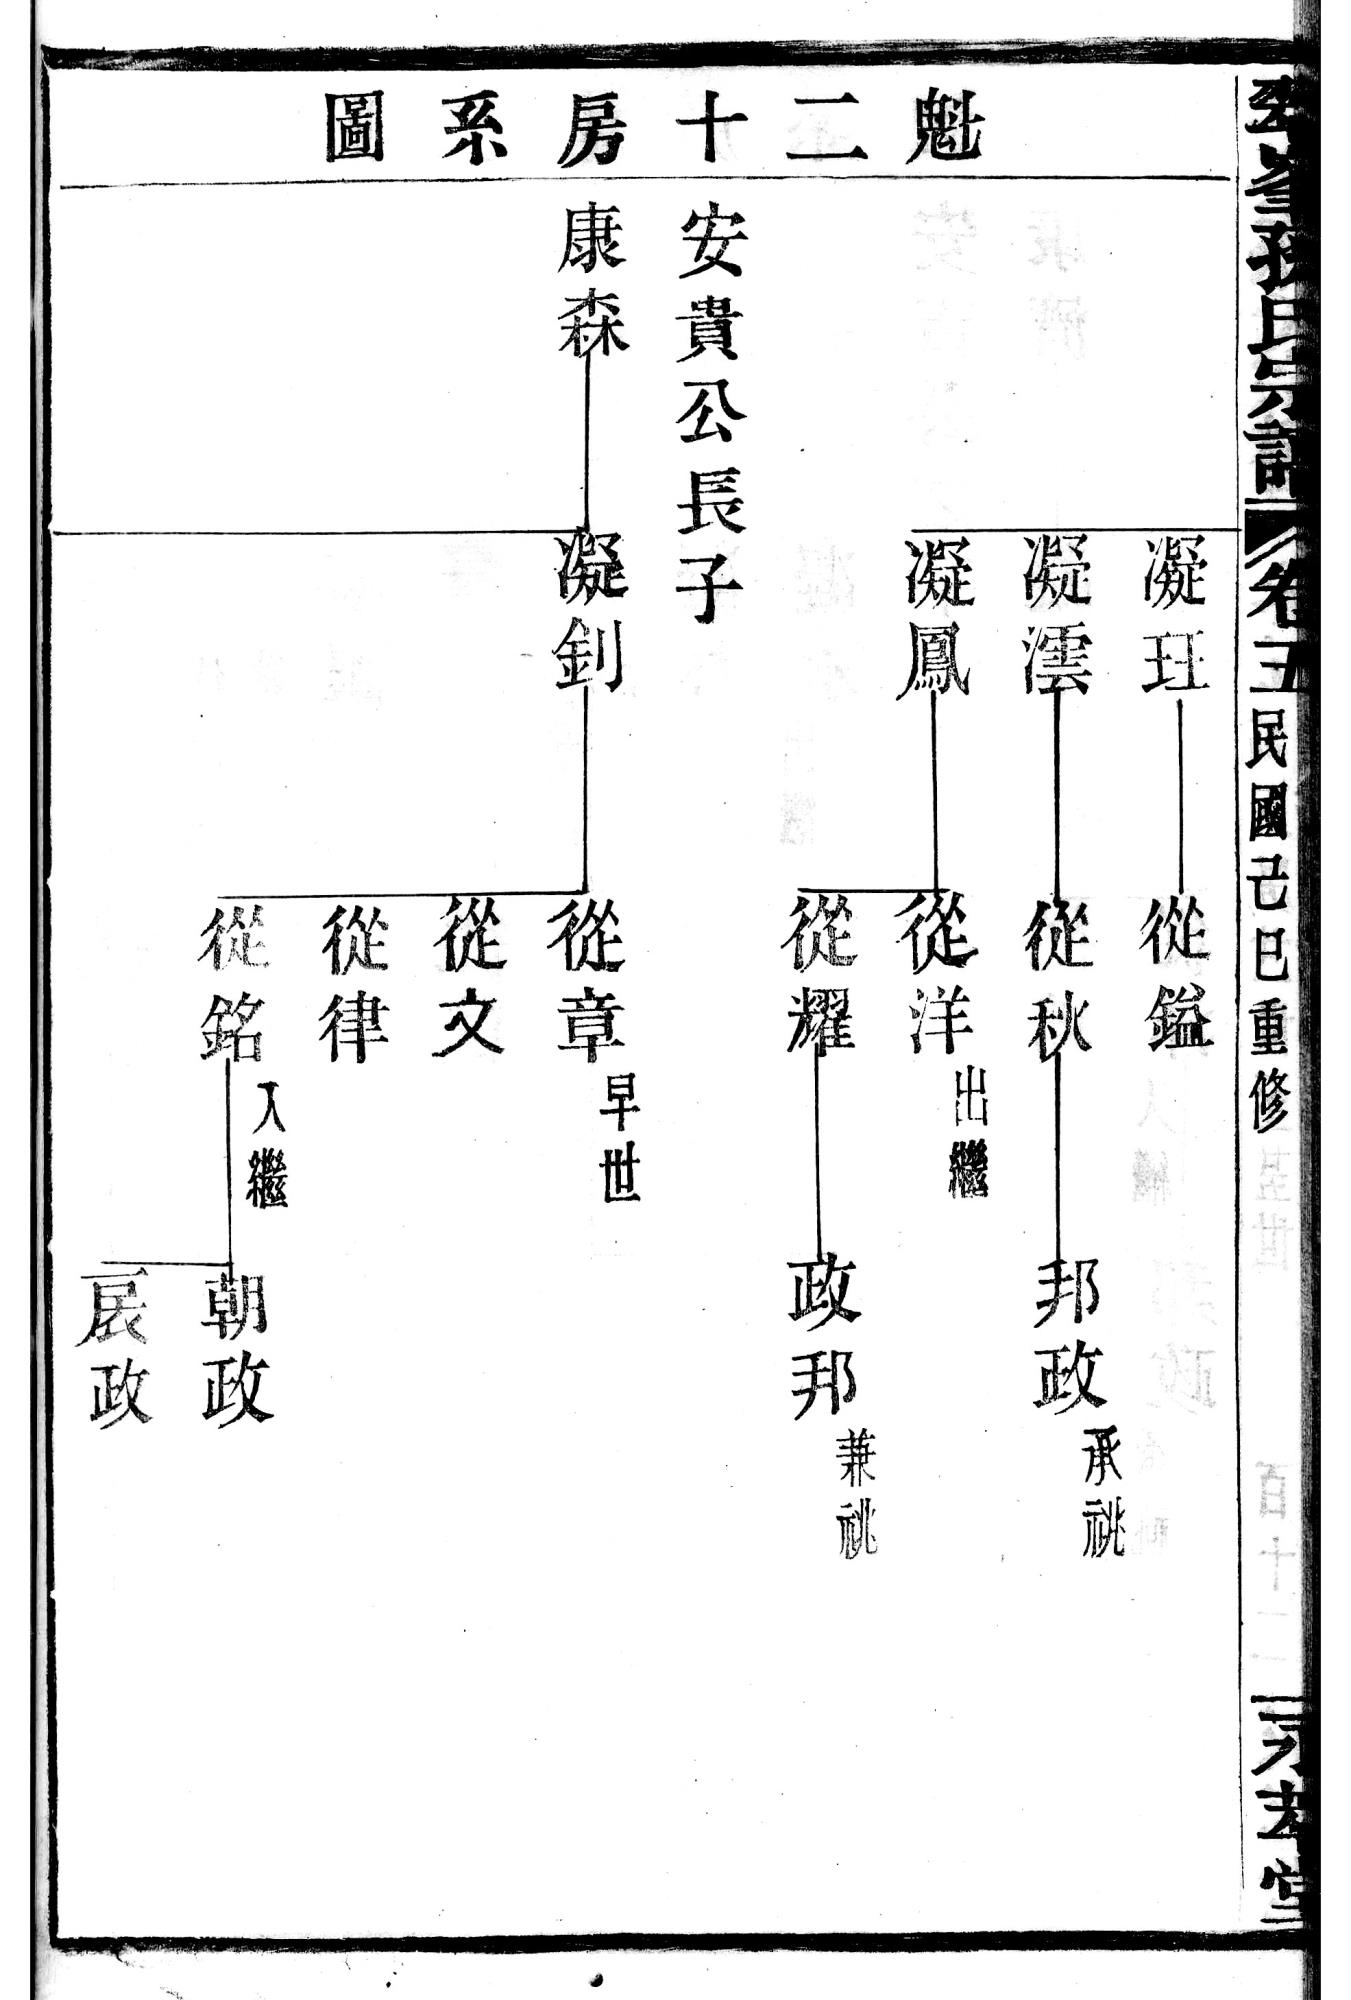 魁二十房系圖
孫氏宗譜
卷五
民國己巳重修
堂
凝玨
從鎰
凝澐
從秋
邦政
承祧
凝鳳
從洋
出繼
從耀
政邦
兼祧
安貴公長子
康森
凝釗
從章
早世
從文
從律
從銘
入繼
朝政
展政